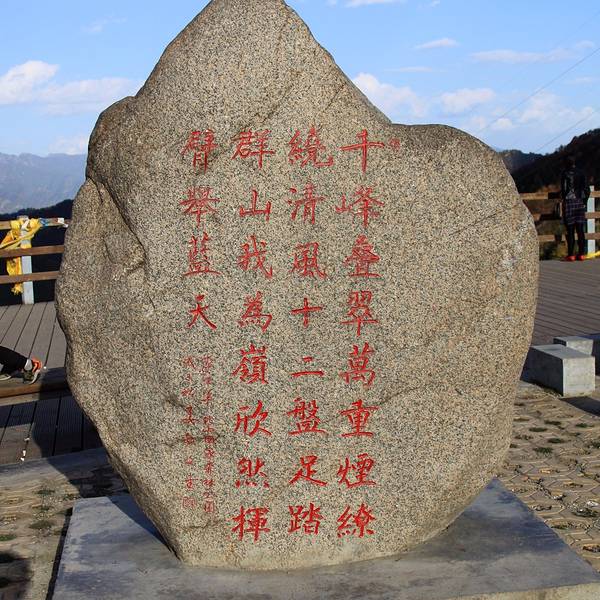 千峰叠翠萬重煙繚
繞清風十二盤足踏
群山我為嶺欣然揮
臂舉藍天